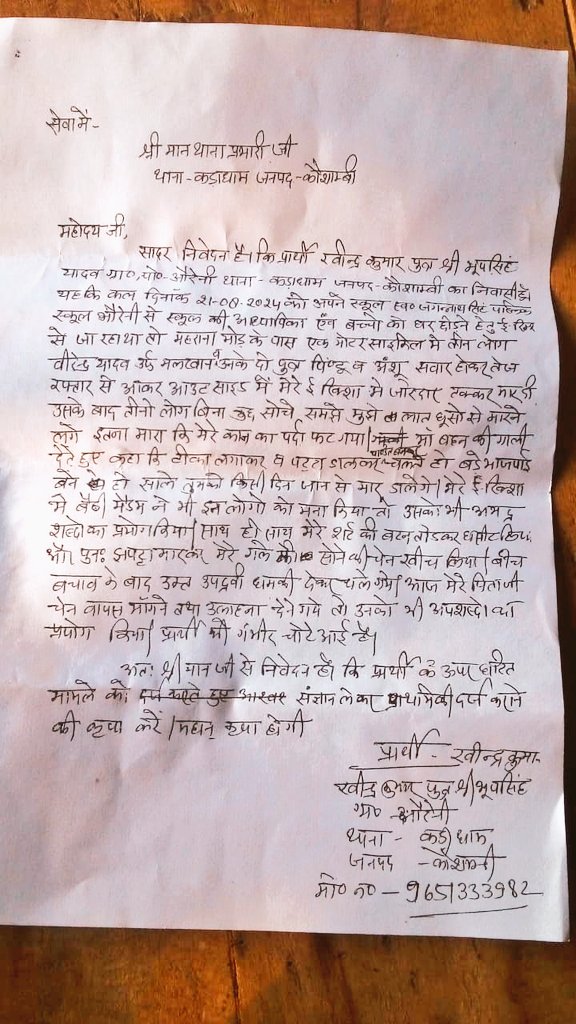 सेवा में -
श्री मान थाना प्रभारी जी
थाना - कड़ाधाम जनपद - कौशाम्बी
महोदय जी,
सादर निवेदन है। कि प्रार्थी रवीन्द्र कुमार पुत्र श्री भूपसिंह
यादव ग्रा०, पो० - औरेनी थाना - कड़ाधाम जनपद - कौशाम्बी का निवासी हूँ
यह कि कल दिनांक 21-08-2024 को अपने स्कूल स्व० जगन्नाथ सिंह पब्लिक
स्कूल औरेनी से स्कूल की अध्यापिका एवं बच्चो को घर छोड़ने हेतु ई रिक्शा
से जा रहा था तो महराना मोड़ के पास एक मोटर साइकिल में तीन लोग
वीरेन्द्र यादव उर्फ मलखान व उनके दो पुत्र पिण्टू व अंशू सवार होकर तेज
रफ्तार से आकर आउट साइड में मेरे ई रिक्शा में जोरदार टक्कर मार दी
उसके बाद तीनो लोग बिना कुछ सोचे समझे मुझे लात घूसो से मारने
लगे इतना मारा कि मेरे कान का पर्दा फट गया। माँ बहन की गाली
देते हुए कहा कि टीका लगाकर व पट्टा डालकर चलते हो बड़े भाजपाई
बने हो साले तुमको किसी दिन जान से मार डालेंगे। मेरे ई रिक्शा
में बैठी मैडम ने भी इन लोगो को मना किया तो उसका भी अभद्र
शब्दो का प्रयोग किया। साथ ही साथ मेरे शर्ट की बटन तोड़कर घसीट लिया
और पुनः झपट्टा मारकर मेरे गले की सोने की चेन खीच लिया। बीच
बचाव के बाद उक्त उपद्रवी धमकी देकर चले गये। आज मेरे पिता जी
चेन वापस माँगने तथा उलाहना देने गये तो उनको भी अपशब्दो का
प्रयोग किया। प्रार्थी को गंभीर चोटे आई है।
अतः श्री मान जी से निवेदन है। कि प्रार्थी के ऊपर घटित
मामले को संज्ञान लेकर प्राथमिकी दर्ज कराने
की कृपा करें। महान कृपा होगी
प्रार्थी - रवीन्द्र कुमार
रवीन्द्र कुमार पुत्र श्री भूपसिंह
ग्रा० - औरेनी
थाना - कड़ा धाम
जनपद - कौशाम्बी
मो० न० - 9651333982